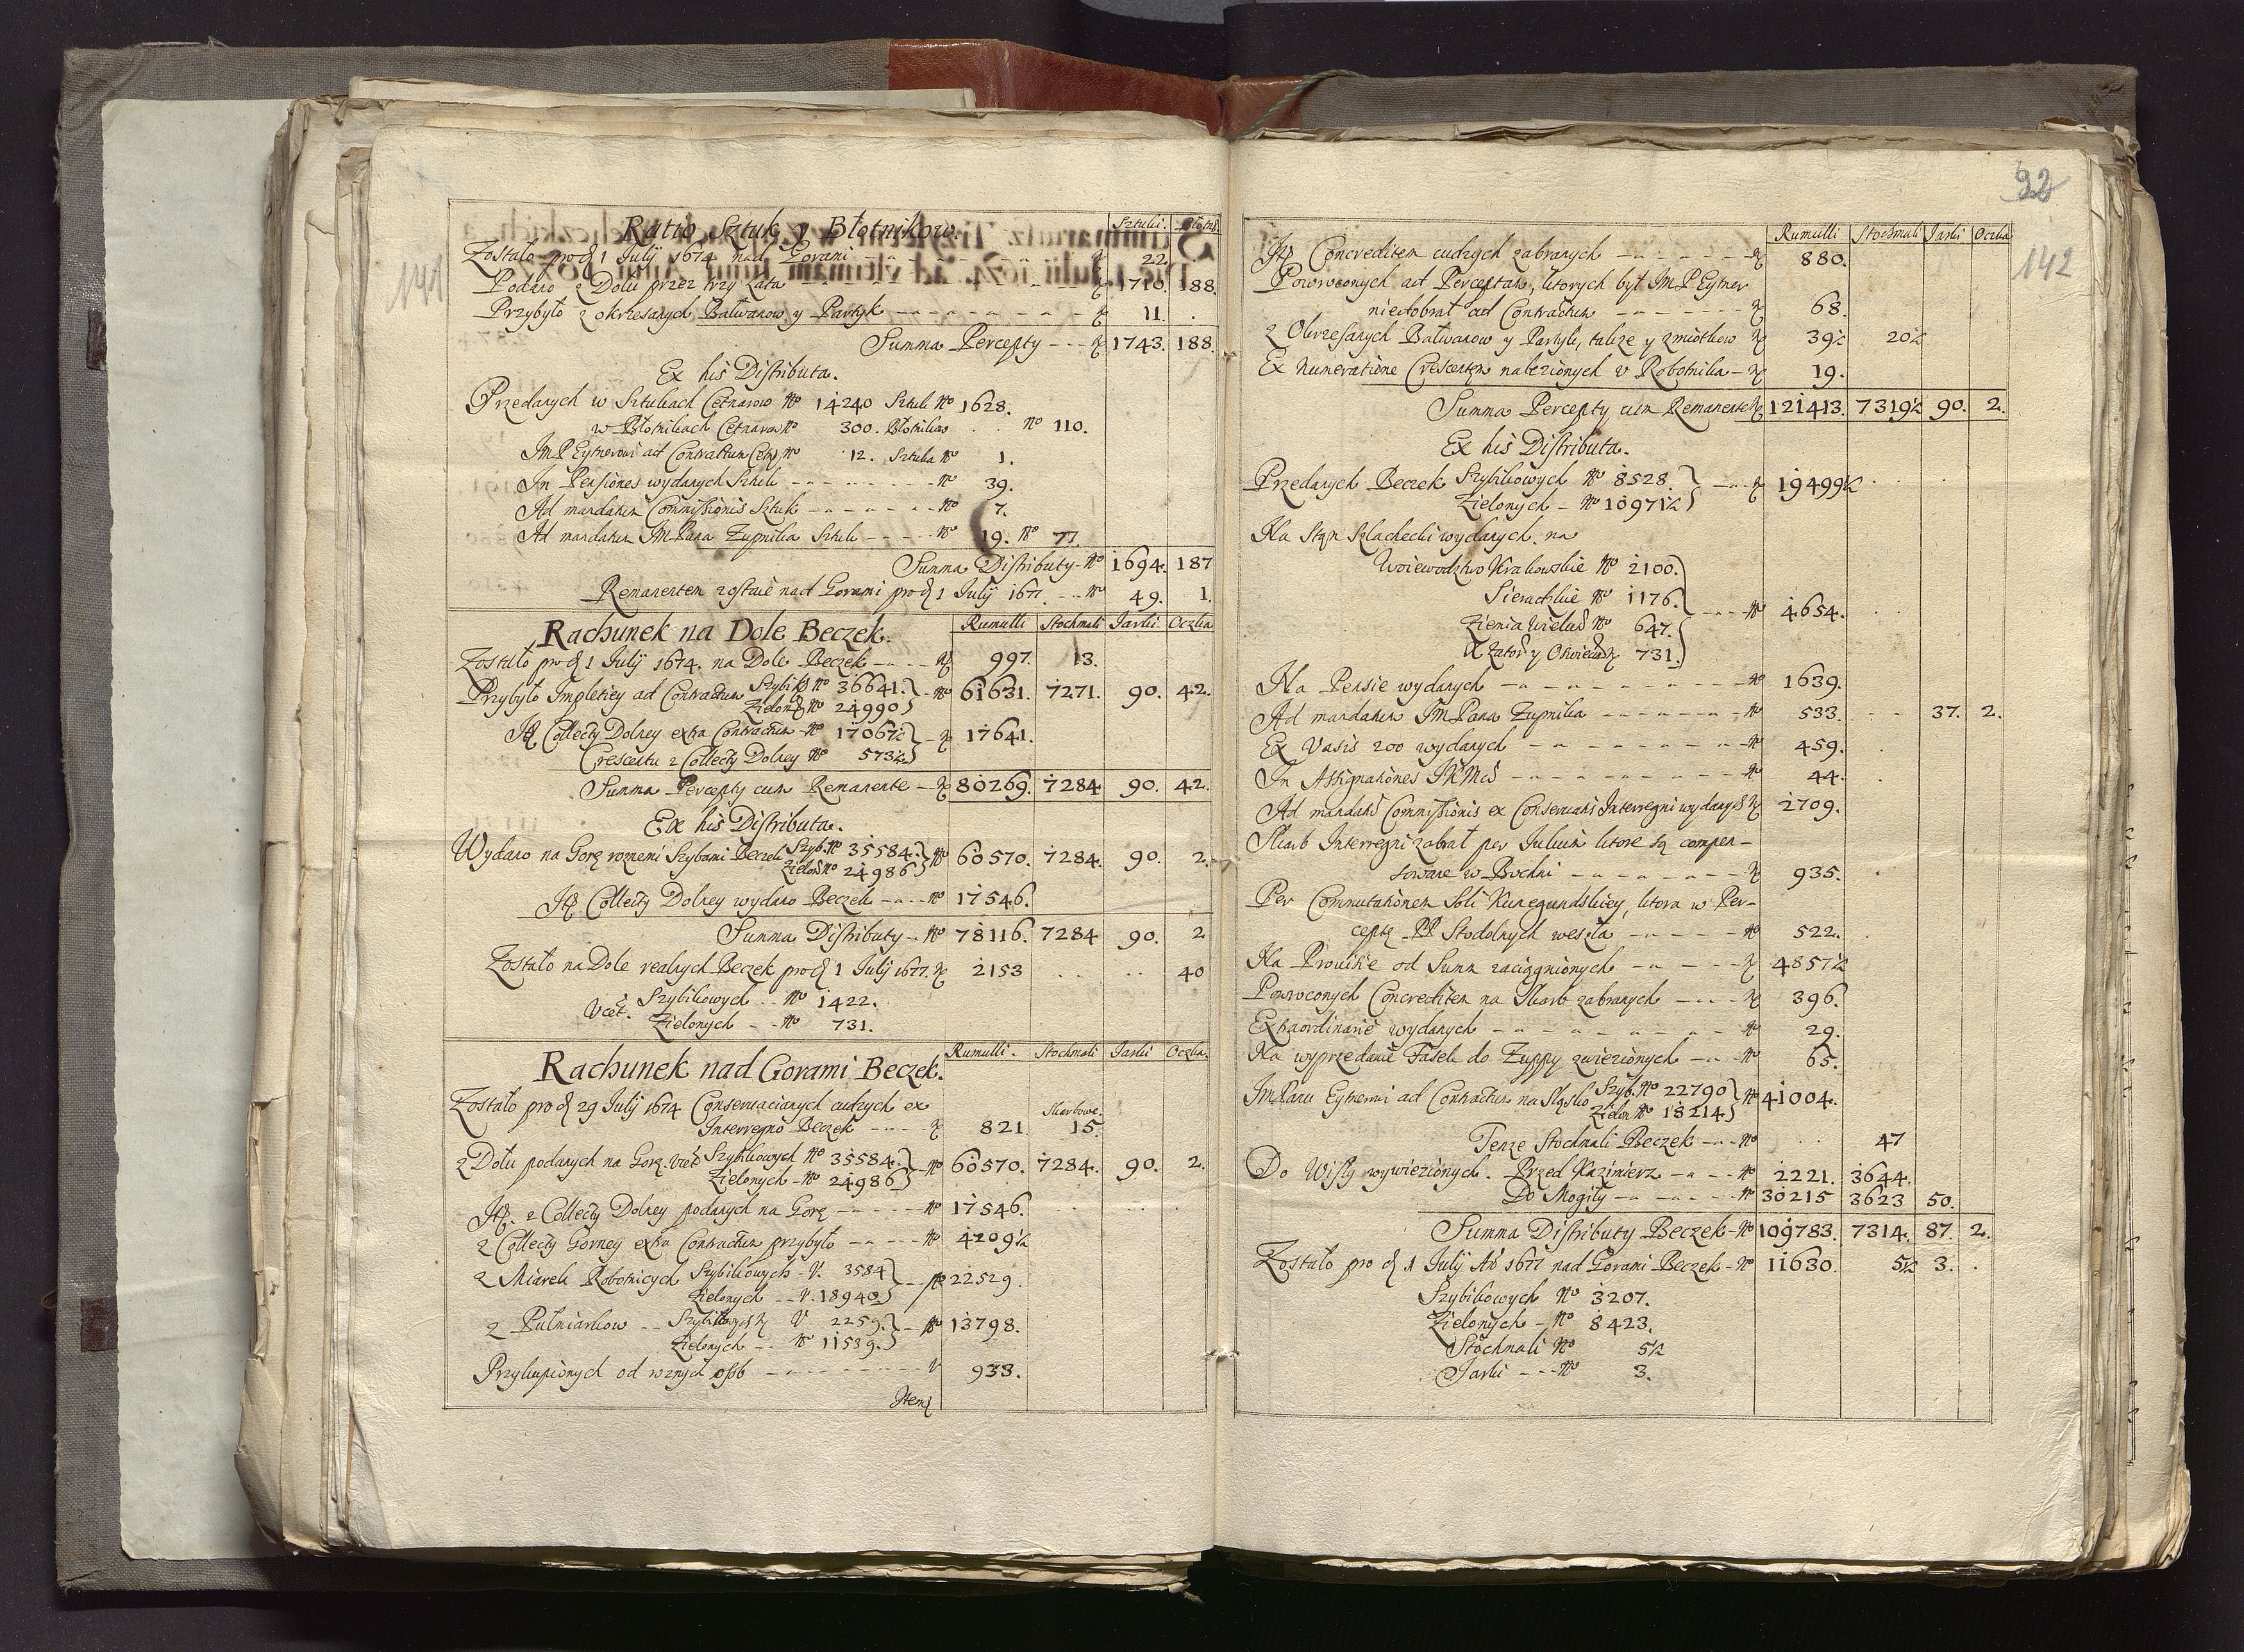 141
Ratio Sztuk y Błotnikow. Sztuki. Błotni.
Zostało pro d 1 Julij 1674 nad Gorami 22.
Podano z Dołu przez trzy Lata 1710. 188.
Przybyło z okrzesanych Bałwanow y Partyk 11. .
Summa Percepty 1743. 188.
Ex his Distributa.
Przedanych w Sztukach Cetnarow No 14240 Sztuk No 1628.
w Błotnikach Cetnarow No 300. Błotnikow No 110.
JmP Eytnerowi ad Contractum Cetn No 12. Sztuka No 1.
In Pensiones wydanych Sztuk No 39.
Ad mandatum Commissionis Sztuk No 7.
Ad mandatum JmPana Zupnika Sztuk No 19. No 77.
Summa Distributy No 1694. 187
Remanentem zostaie nad Gorami pro d 1 Julij 1677 No 49. 1.
Rachunek na Dole Beczek. Rumulli Stochmali Jarki Oczka
Zostało pro d 1 Julij 1674. na Dole Beczek 997. 13.
Przybyło Impletiey ad Contractum Szybik No 36641. Zielon No 24990 No 61631. 7271. 90. 42.
It Collecty Dolney extra Contractum No 17067½
Crescentu z Collecty Dolney No 573½ 17641.
Summa Percepty cum Remanente 80269. 7284 90. 42.
Ex his Distributa.
Wydano na Gorę roznemi Szybami Beczek Szyb. No 35584. Zielon No 24986 No 60570. 7284. 90. 2.
It Collecty Dolney wydano Beczek No 17546.
Summa Distributy No 78116. 7284 90. 2
Zostało na Dole realnych Beczek pro d 1 Julij 1677. 2153 .. .. 40
Vcet. Szybikowych No 1422.
Zielonych No 731.
Rachunek nad Gorami Beczek. Rumulli. Stochmali Jarki Oczka.
Zostało pro d 29 Julij 1674 Conserwacianych cudzych ex
Interregno Beczek 821 Skarbowe. 15.
z Dołu podanych na Gorę. Vcet Szybikowych No 35584. Zielonych No 24986 No 60570. 7284. 90. 2.
It. z Collecty Dolney podanych na Gorę No 17546.
z Collecty Gorney extra Contractum przybyło No 4209½
z Miarek Robotniczych Szybikowych V. 3584 Zielonych V. 18940 22529.
z Pułmiarkow Szybikowych V 2259. Zielonych No 11539. No 13798.
Przykupionych od roznych osob V 933.
Item
92
142
Rumulli Stochmali Jarki Oczka
It Concreditem cudzych zabranych 880.
Powroconych ad Perceptam, ktorych był JmP Eytner
niedobrał ad Contractum 68.
z Okrzesanych Bałwanow y Partyk, takze y zmiotkow No 39½ 20½
Ex Numeratione Crescentem nalezionych v Robotnika 19.
Summa Percepty cum Remanente 121413. 7319½ 90. 2.
Ex his Distributa.
Przedanych Beczek Szybikowych No 8528. Zielonych No 10971½ 19499½
Na Stan Szlachecki wydanych. na
Woiewodztwo Krakowskie No 2100.
Sieradzkie No 1176.
Ziemia Wielun No 647. No 4654.
X Zator y Oswiecim 731.
Na Pensie wydanych No 1639.
Ad mandatum JmPana Zupnika No 533. 37. 2.
Ex Vasis 200 wydanych No 459.
In Assignationes JKMci No 44.
Ad mandat Commissionis ex Conservatis Interregni wydanych 2709.
Skarb Interregni zabrał per Julium ktore są compen-
sowane w Bochni 935.
Per Commutationem Soli Kunegundskiey, ktora w Per-
ceptę PP Stodolnych weszła No 522.
Na Prouisie od Summ zaciągnionych 4857½
Powroconych Concreditem na Skarb zabranych 396.
Extraordinarie wydanych No 29.
Na wyprzedanie Fasek do Zuppy zwiezionych No 65.
JmPanu Eytnerowi ad Contractum na Sląsko Szyb. No 22790 Zielon No 18214 No 41004.
Tenze Stochmali Beczek No 47
Do Wisły wywiezionych. Przed Kazimierz No 2221. 3644.
Do Mogiły No 30215 3623 50.
Summa Distributy Beczek No 109783. 7314. 87. 2.
Zostało pro d 1 Julij Ao 1677 nad Gorami Beczek No 11630. 5½ 3. .
Szybikowych No 3207.
Zielonych No 8423.
Stochmali No 5½
Jarki No 3.